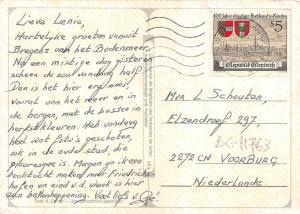 Lieve Lenie,
Hartelijke groeten vanuit
Bregenz aan het Bodenmeer.
Na een mistige dag gisteren
scheen de zon vandaag half.
Dan is het hier erg mooi,
vooral aan het meer en in
de bergen, met de bossen in
herfstkleuren. Heb vandaag
heel wat foto's geschoten,
ook in de oude stad, die
pikoresque is. Morgen ga ik een
boottocht maken naar Friedrichs-
hafen en eind v.d. week is hier
een ballonhappening. Veel liefs v. Gé
S5
Republik Österreich
Mevr L Schouten,
Elzendreef 297
BG-11763
2272 CN VOORBURG
Niederlande